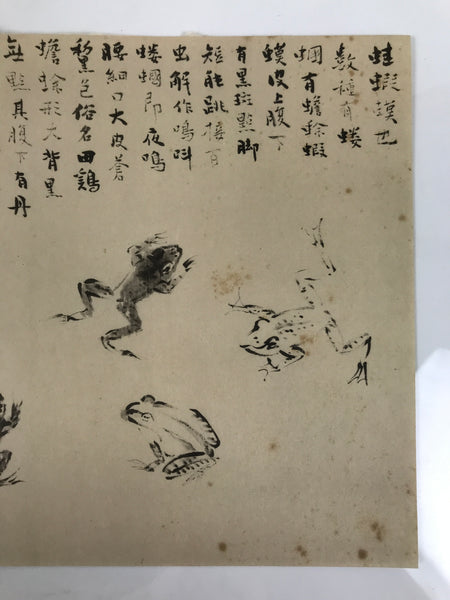 蛙蝦蟆也
數種有螻
蟈有蟾蜍蝦
蟆皮上腹下
有黑斑點脚
短能跳接百
虫解作鳴呌
螻蟈即夜鳴
腰細口大皮蒼
黎黑色俗名田鷄
蟾蜍形大背黑
無點其腹下有丹